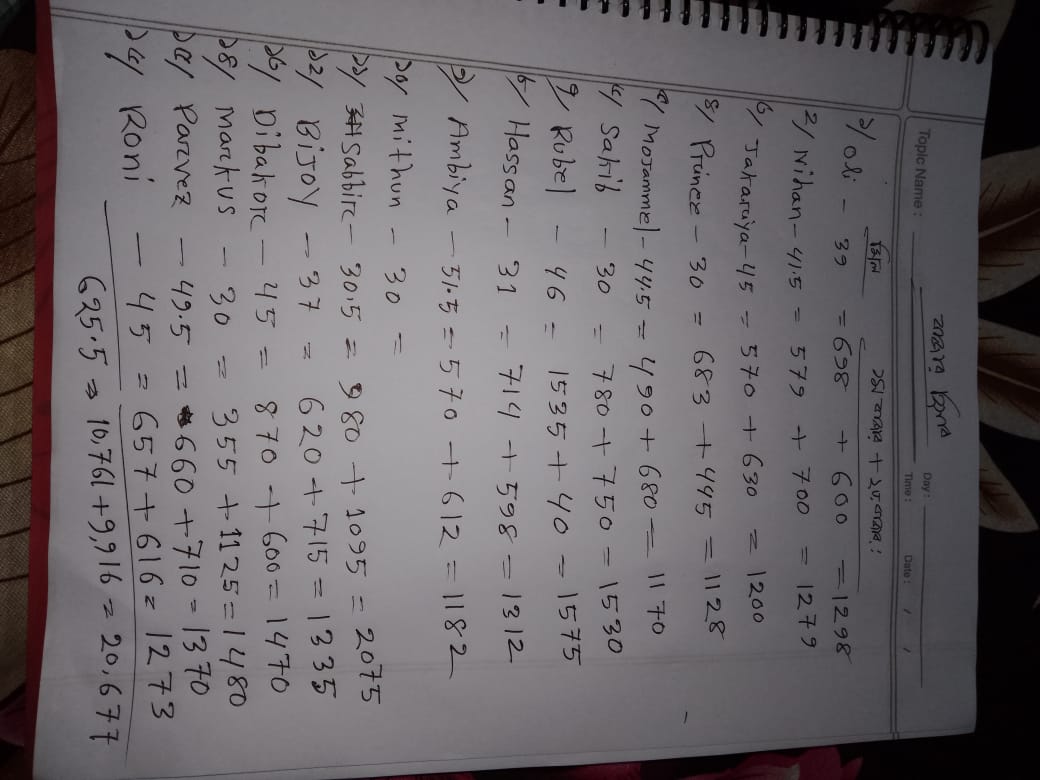 বাজার হিসাব
Topic Name :
Day :
Time : Date : / /
মিল ১ম বাজার + ২য় বাজার :
১/ Oli - 39 = 698 + 600 = 1298
2/ Nihan - 41.5 = 579 + 700 = 1279
৩/ Jakariya - 45 = 570 + 630 = 1200
৪/ Prince - 30 = 683 + 445 = 1128
৫/ Mojammel - 44.5 = 490 + 680 = 1170
৬/ Sakib - 30 = 780 + 750 = 1530
৭/ Rubel - 46 = 1535 + 40 = 1575
৮/ Hassan - 31 = 714 + 598 = 1312
৯/ Ambiya - 51.5 = 570 + 612 = 1182
১০/ mithun - 30 =
১১/ Sabbir - 30.5 = 980 + 1095 = 2075
১২/ BiJOY - 37 = 620 + 715 = 1335
১৩/ Dibakor - 45 = 870 + 600 = 1470
১৪/ Markus - 30 = 355 + 1125 = 1480
১৫/ Parvez - 49.5 = 660 + 710 = 1370
১৬/ Roni - 45 = 657 + 616 = 1273
625.5 => 10,761 + 9,916 = 20,677